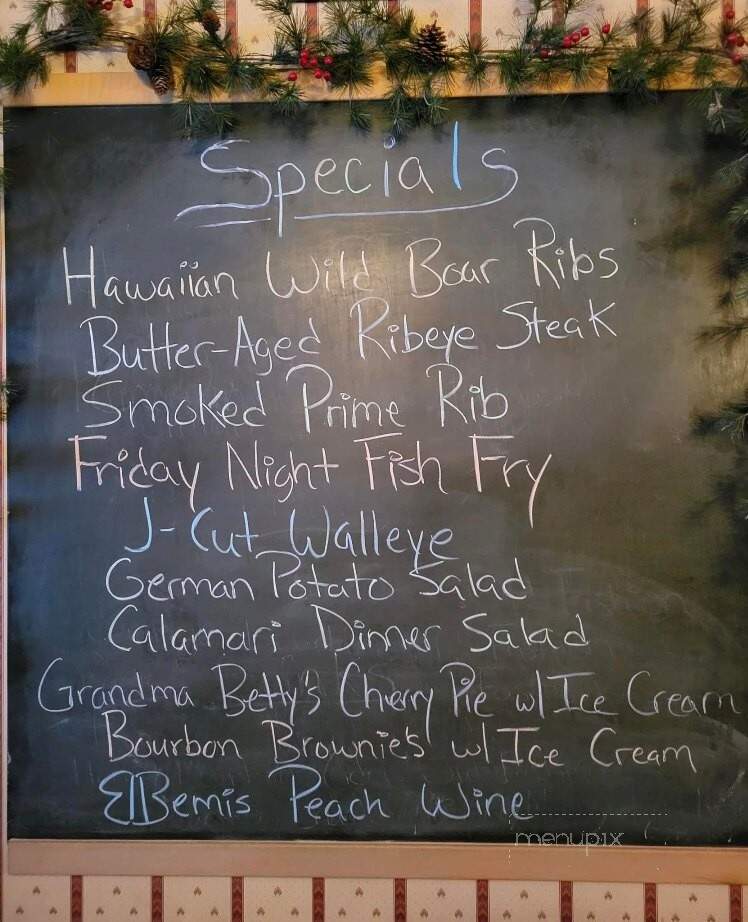 Specials
Hawaiian Wild Boar Ribs
Butter-Aged Ribeye Steak
Smoked Prime Rib
Friday Night Fish Fry
J-Cut Walleye
German Potato Salad
Calamari Dinner Salad
Grandma Betty's Cherry Pie w/ Ice Cream
Bourbon Brownies w/ Ice Cream
Bemis Peach Wine
menupix